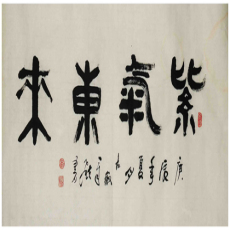 紫氣東來
庚辰年夏月